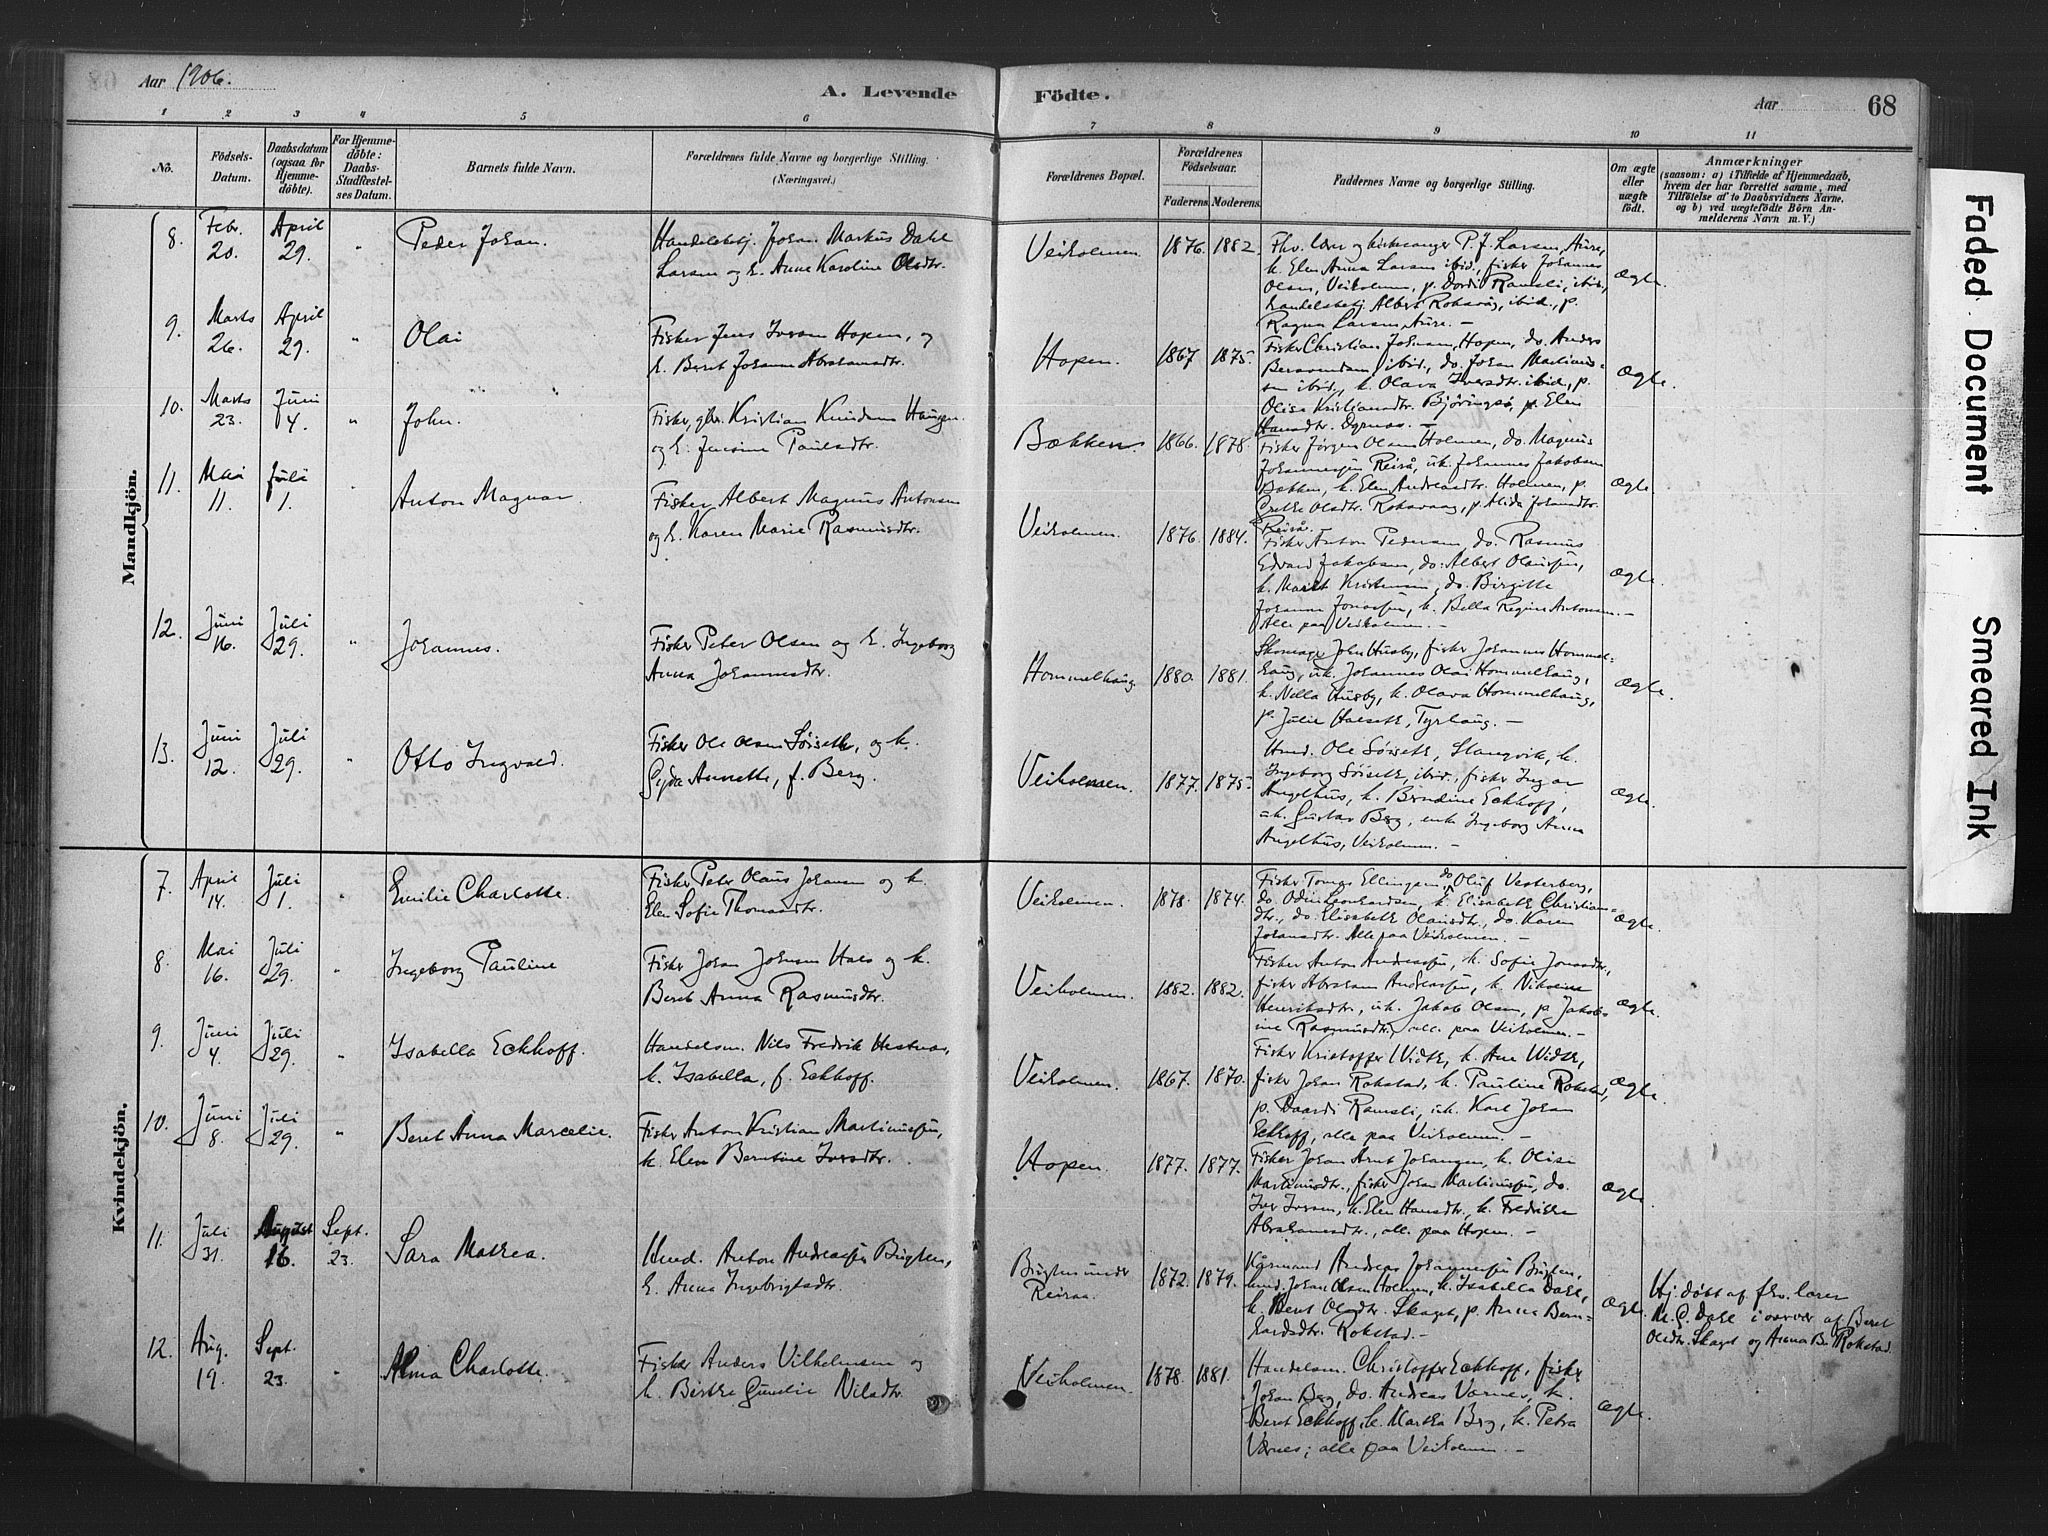 Aar 1906.
A. Levende Födte.
Aar
68
1 2 3 4 5 6 7 8 9 10 11
No.
Födsels-Datum.
Daabsdatum (ogsaa for Hjemme-döbte).
For Hjemme-döbte: Daabs-Stadfæstel-ses Datum.
Barnets fulde Navn.
Forældrenes fulde Navne og borgerlige Stilling.
(Næringsvei.)
Forældrenes Bopæl.
Forældrenes Födselsaar.
Faderens. Moderens.
Faddernes Navne og borgerlige Stilling.
Om ægte eller uægte födt.
Anmærkninger
(saasom: a) i Tilfælde af Hjemmedaab,
hvem der har forrettet samme, med
Tilföielse af to Daabsvidners Navne,
og b) ved uægtefödte Börn An-
melderens Navn m. V.)
Mandkjön.
8. Febr. 20. April 29. " Peder Johan.
Handelsbetj. Johan Markus Dahl
Larsen og h. Anna Karoline Olsdtr.
Veiholmen 1876. 1882.
Fhv. lærer og kirkesanger P. J. Larsen, Aure,
h. Elen Anna Larsen ibid., fisker Johannes
Olsen, Veiholmen, p. Dordi Ramsli, ibid.,
handelsbetj. Albert Roksvåg, ibid., p.
Ragna Larsen, Aure. –
Ægte.
9. Marts 26. April 29. " Olai
Fisker Jens Iversen Hopen, og
h. Beret Johanna Abrahamsdtr.
Hopen. 1867 1875.
Fisker Christian Johnsen, Hopen, do. Anders
ibid., do. Johan Martinus-
sen ibid., h. Olava Iversdtr. ibid., p.
Olise Kristiansdtr. p. Elen
Hansdtr. –
Ægte.
10. Marts 23. Juni 4. " John.
Fisker, gbr. Kristian Knudsen Haugen
og h. Jensine Paulsdtr.
Bækken 1866. 1878.
Fisker Jørgen Olsen Holmen, do. Magnus
Johannessen Reirå, uk. Johannes Jakobsen
Bækken, h. Elen Andreasdtr. Holmen, p.
Grethe Olsdtr. Roksvaag, p. Alida Johansdtr.
Reirå.
Ægte.
11. Mai 11. Juli 1. " Anton Magnar
Fisker Albert Magnus Antonsen
og h. Karen Marie Rasmusdtr.
Veiholmen. 1876. 1884.
Fisker Anton Pedersen, do. Rasmus
Edvard Jakobsen, do. Albert Olaussen,
h. Marit Kristensen, do. Birgitte
Johanna Jonassen, h. Bella Regine Antonsen. –
Alle paa Veiholmen. –
Ægte.
12. Juni 16. Juli 29. " Johannes.
Fisker Peter Olsen og h. Ingeborg
Anna Johannesdtr.
Hommelhaug 1880. 1881.
Skomager John Husby, fisker Johannes Hommel-
haug, uk. Johannes Olai Hommelhaug,
h. Nella Husby, h. Olava Hommelhaug,
p. Julie Halseth, Tyrhaug. –
Ægte.
13. Juni 12. Juli 29. " Otto Ingvald.
Fisker Ole Olsen Søiseth, og h.
Gyda Annette, f. Berg.
Veiholmen. 1877. 1875.
Hmd. Ole Søiseth, Stangvik, h.
Ingeborg Søiseth, ibid., fisker Ingvar
Angelhus, h. Berndine Eckhoff,
uk. Gustav Berg, enke Ingeborg Anna
Angelhus, Veiholmen. –
Ægte.
Kvindekjön.
7. April 14. Juli 1. " Emilie Charlotte.
Fisker Peter Olaus Johansen og h.
Elen Sofie Thomasdtr.
Veiholmen. 1878. 1874.
Fisker Ellingsen, do Oluf Vesterberg,
do. Odin Leonhardsen, h. Elisabeth Christians-
dtr., do. Elisabeth Olausdtr., do. Karen
Johansdtr. Alle paa Veiholmen. –
Ægte.
8. Mai 16. Juli 29. " Ingeborg Pauline
Fisker Johan Johnsen Hals og h.
Beret Anna Rasmusdtr.
Veiholmen. 1882. 1882.
Fisker Anton Andreassen, h. Sofie Jonasdtr.,
fisker Abraham Andreassen, h. Nikoline
Henriksdtr., uk. Jakob Olsen, p. Jakob-
ine Rasmusdtr., alle paa Veiholmen. –
Ægte.
9. Juni 4. Juli 29. " Isabella Eckhoff.
Handelsm. Nils Fredrik Hestnes,
h. Isabella, f. Eckhoff.
Veiholmen. 1867. 1870.
Fisker Kristoffer Width, h. Ane Width,
fisker Johan Rokstad, h. Pauline Rokstad,
p. Daardi Ramsli, uk. Karl Johan
Eckhoff, alle paa Veiholmen. –
Ægte.
10. Juni 8. Juli 29. " Beret Anna Marcelie.
Fisker Anton Kristian Martinussen,
h. Elen Berntine Iversdtr.
Hopen. 1877. 1877.
Fisker Johan Arnt Johansen, h. Olise
Martinusdtr., fisker Johan Martinussen, do.
Iver Iversen, h. Elen Hansdtr., h. Fredrikke
Abrahamsdtr., alle paa Hopen. –
Ægte.
11. Juli 31. August 16. Sept. 23. Sara Mathea.
Hmd. Anton Andreassen Bugten,
h. Anna Ingebrigtsdtr.
Bugten under Reiraa. 1872. 1879.
Kårmand Andreas Johannessen Bugten,
hmd. Johan Olsen Holmen, h. Isabella Dahl,
h. Beret Olsdtr. Skaget, p. Anna Bern-
hardsdtr. Rokstad. –
Ægte.
Hj.døbt af fhv. lærer
M. C. Dahl i nærvær af Beret
Olsdtr. Skaget og Anna B. Rokstad.
12. Aug. 19. Sept. 23. " Alma Charlotte.
Fisker Anders Vilhelmsen og
h. Birthe Gunelie Nilsdtr.
Veiholmen. 1878. 1881.
Handelsm. Christoffer Eckhoff, fisker
Johan Berg, do. Andreas Værnes, h.
Beret Eckhoff, h. Martha Berg, h. Petra
Værnes; alle paa Veiholmen. –
Ægte.
Faded Document
Smeared Ink